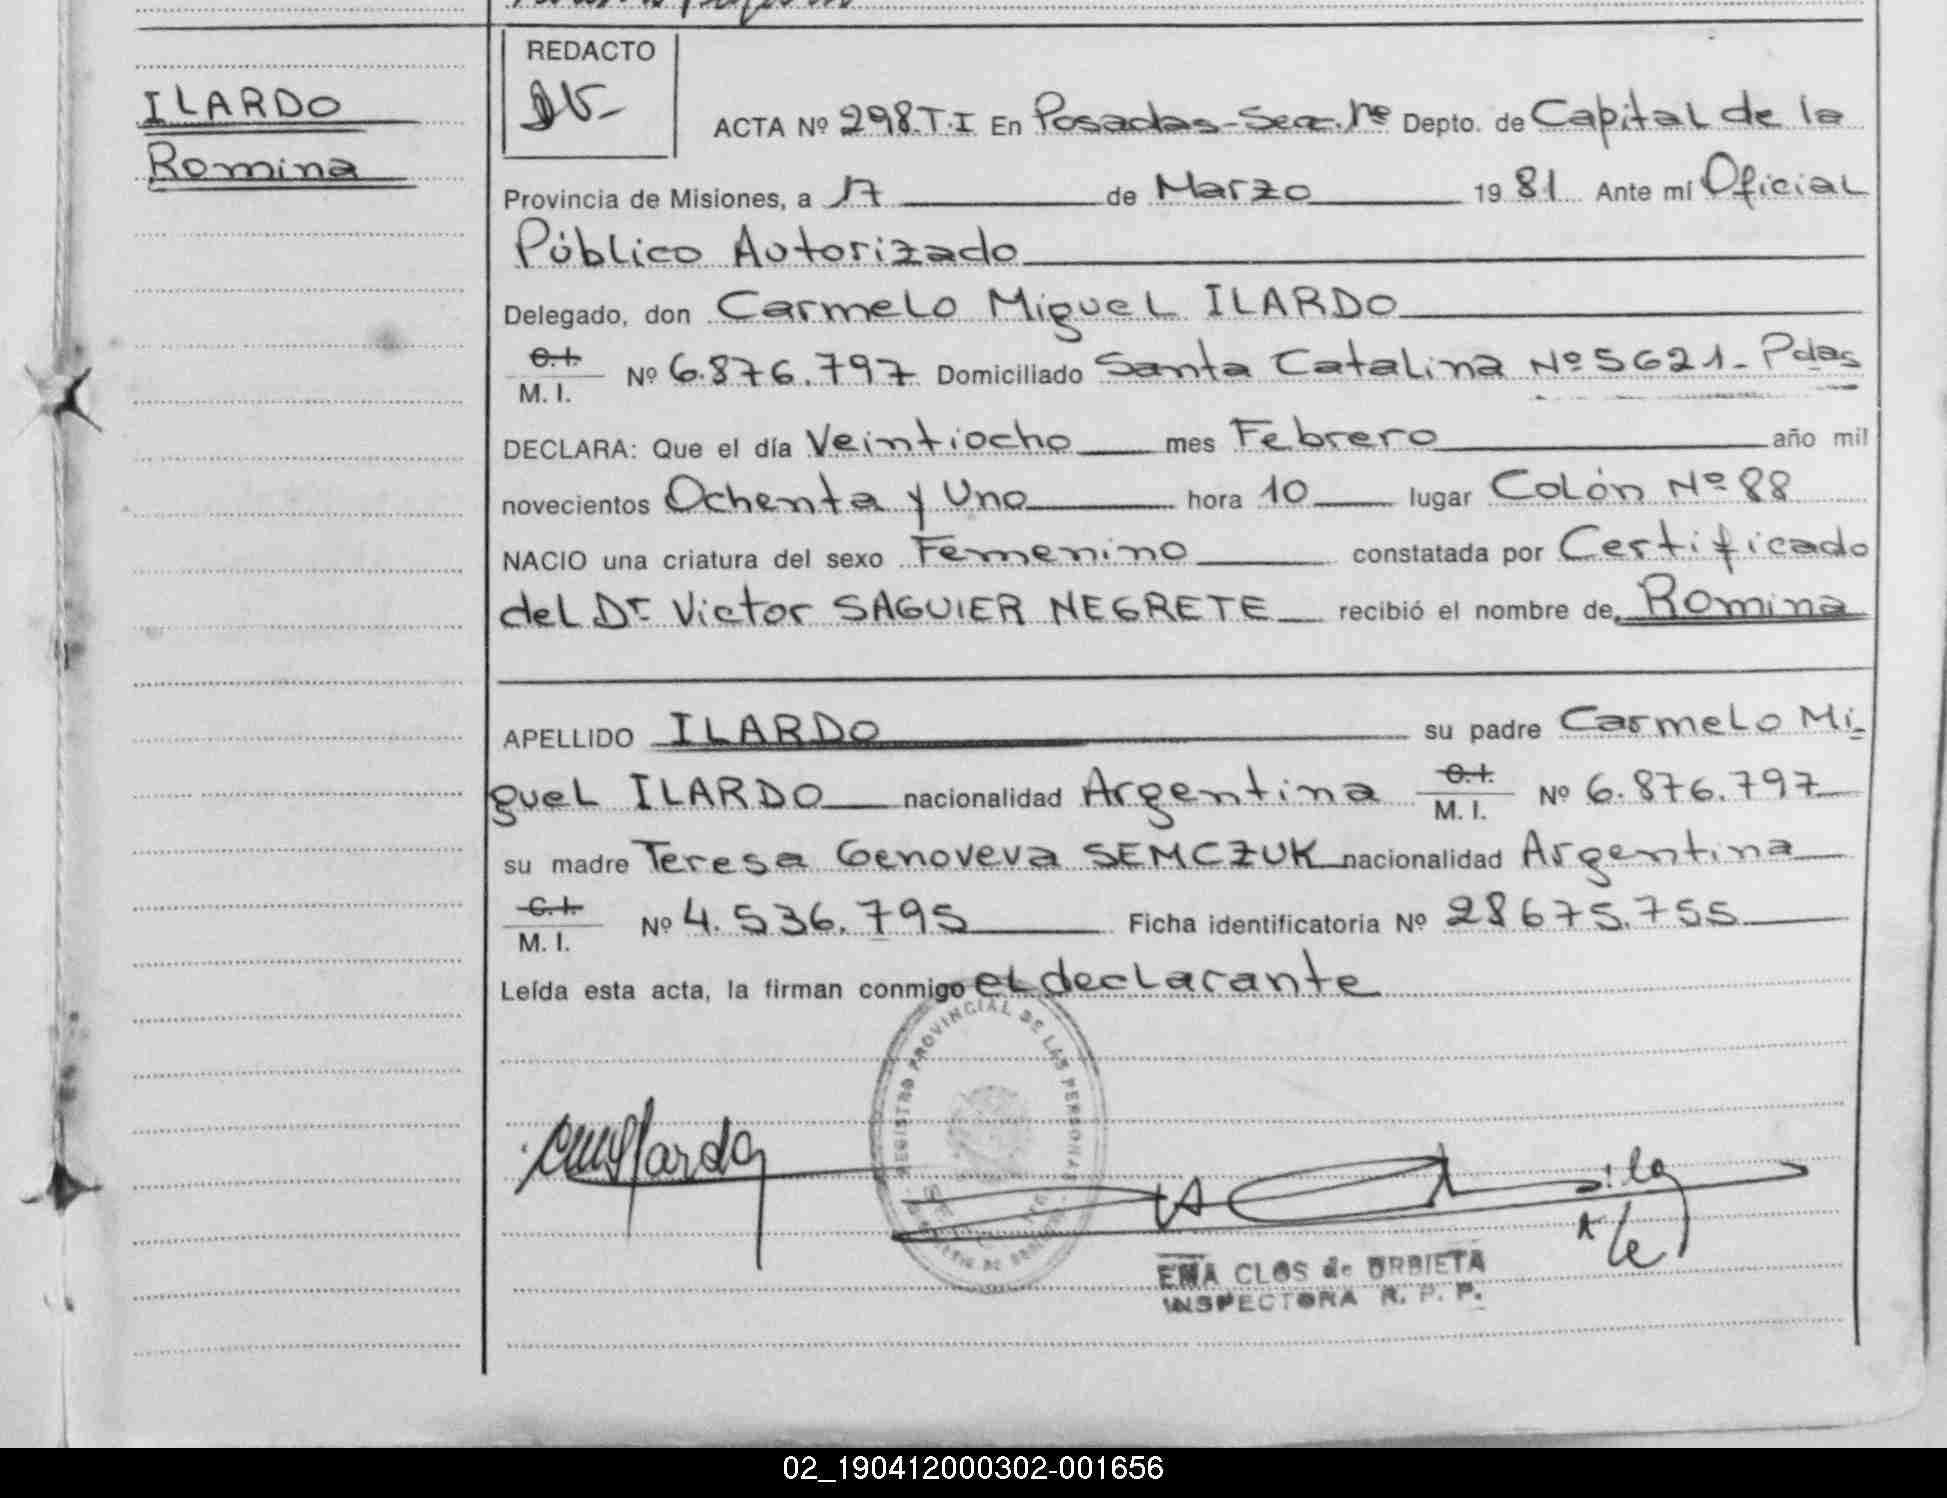 ILARDO
Romina
REDACTO
ACTA Nº 298.T.I En Posadas-Sec.1ª Depto. de Capital de la
Provincia de Misiones, a 17 de Marzo 1981 Ante mí Oficial
Público Autorizado
Delegado, don Carmelo Miguel ILARDO
C.I. M.I. Nº 6.876.797 Domiciliado Santa Catalina Nº 5621- Pdas
DECLARA: Que el día Veintiocho mes Febrero año mil
novecientos Ochenta y Uno hora 10 lugar Colón Nº 88
NACIO una criatura del sexo Femenino constatada por Certificado
del Dr. Victor SAGUIER NEGRETE recibió el nombre de Romina
APELLIDO ILARDO su padre Carmelo Mi-
guel ILARDO nacionalidad Argentina C.I. M.I. Nº 6.876.797
su madre Teresa Genoveva SEMCZUK nacionalidad Argentina
C.I. M.I. Nº 4.536.795 Ficha identificatoria Nº 28675.755
Leída esta acta, la firman conmigo el declarante
REGISTRO PROVINCIAL DE LAS PERSONAS
EMA CLOS de URBIETA
INSPECTORA R. P. P.
02_190412000302-001656